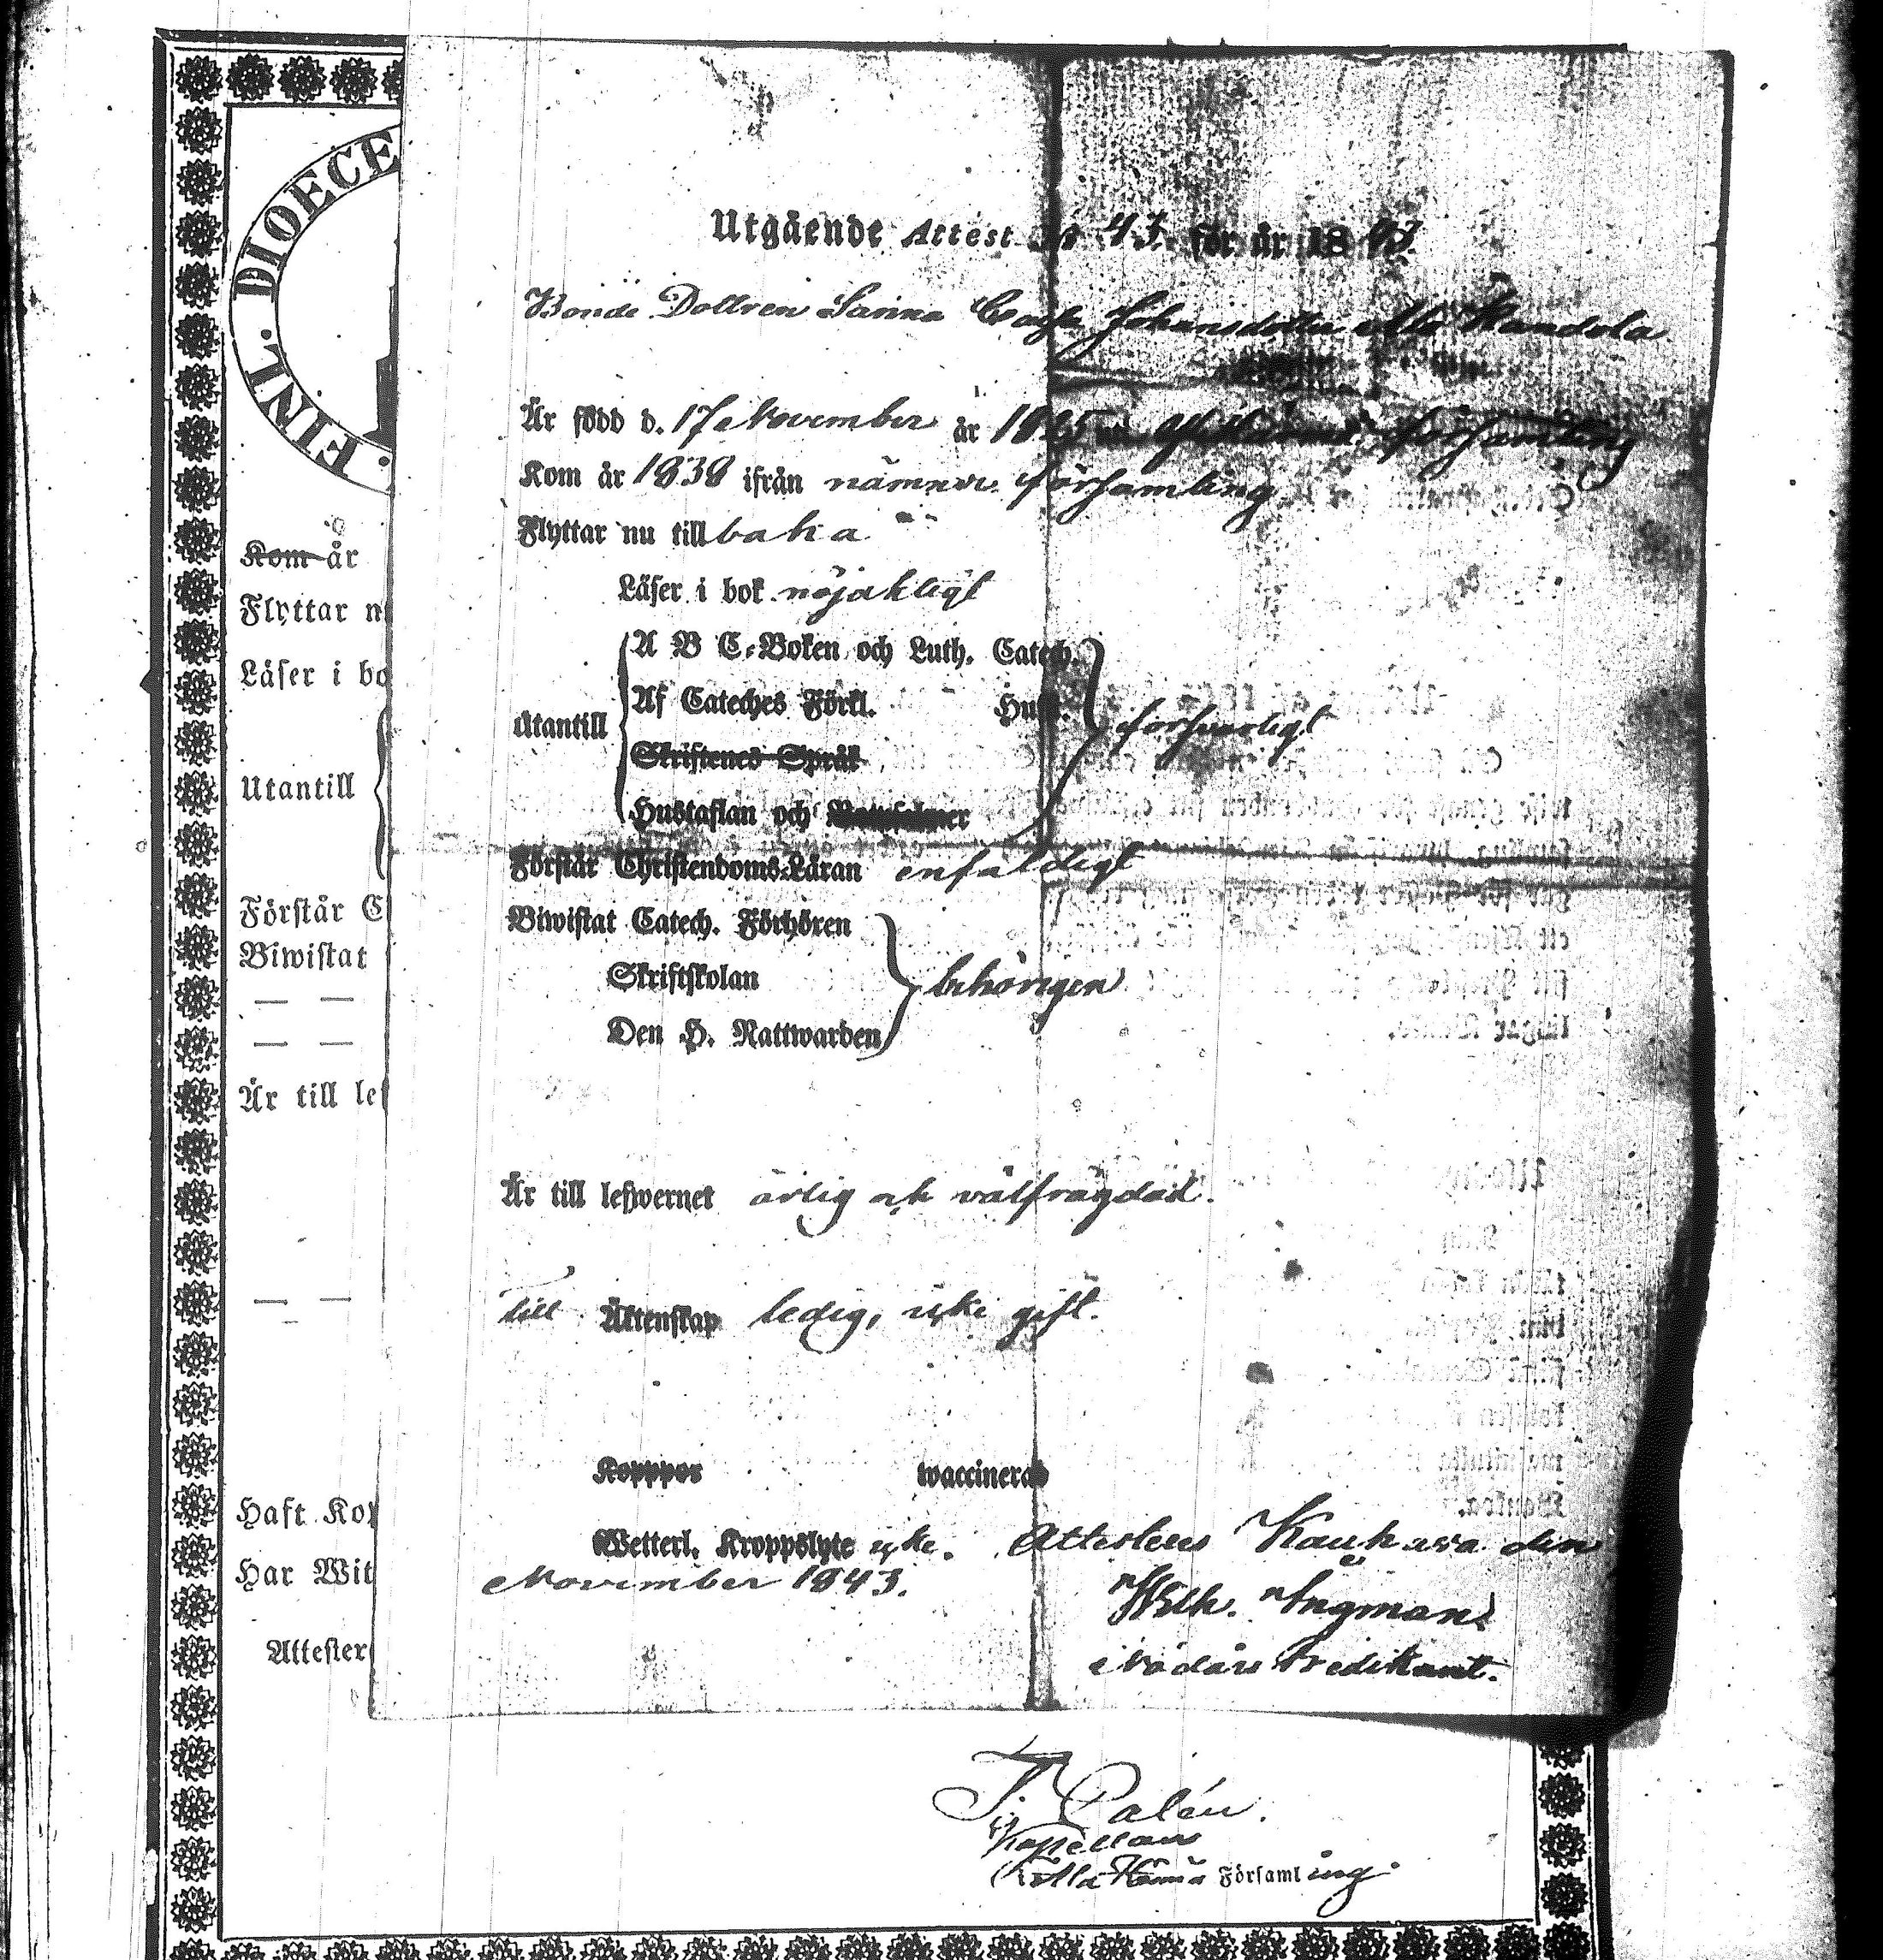 FINL. DIOECE
Utgående Attest No 43 för år 1843.
Bonde Dottren Sanna Johansdotter Mandola
Är född d. 17 November år 1825 församling
Kom år 1838 ifrån nämnde församling
Flyttar nu till baka
Läser i bok nöjaktigt
Utantill
A B C-Boken och Luth. Catech.
Af Cateches Förkl. Hust.
Skriftenes Språk
Hustaflan och
försvarligt
Förstår Christendoms-Läran enfaldigt
Biwistat Catech. Förhören
Skriftskolan
Den H. Nattwarden
behörigen
Är till lefwernet ärlig och välfrägdad.
till Äktenskap ledig, icke gift.
Kopppor waccinerad
Wetterl. Kroppslyte icke. Attesteras Kauhava den
November 1843.
Wilh. Ingman
i vådäre Predikant.
Kom år
Flyttar n
Läser i bo
Utantill
Förstår C
Biwistat
— —
— —
Är till lef
— —
Haft Kop
Har Wit
Attester
Palén.
Kapellan
Församling.